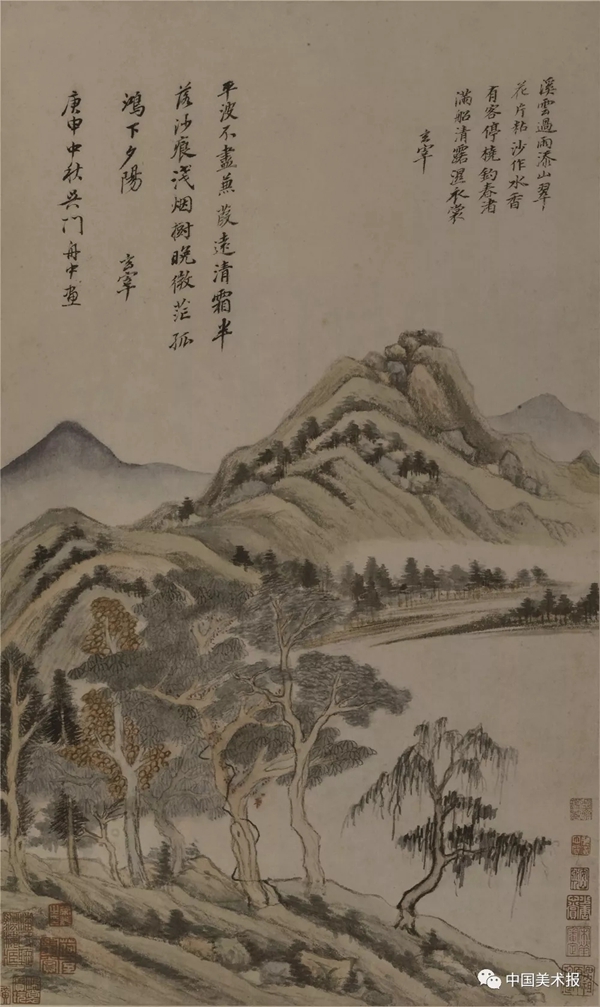 溪雲過雨添山翠
花片粘沙作水香
有客停橈釣春渚
滿船清露濕衣裳
玄宰
平波不盡蒹葭遠清霜半
落沙痕淺烟樹晚微茫孤
鴻下夕陽 玄宰
庚申中秋吳門舟中畫
中国美术报